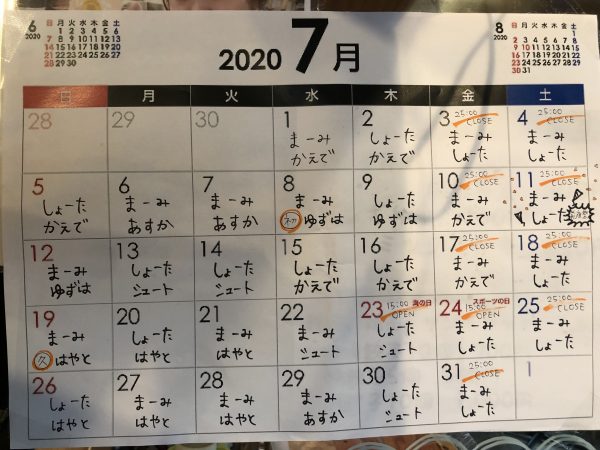 6
2020
日 月 火 水 木 金 土
1 2 3 4 5 6
7 8 9 10 11 12 13
14 15 16 17 18 19 20
21 22 23 24 25 26 27
28 29 30
2020 7月
8
2020
日 月 火 水 木 金 土
1
2 3 4 5 6 7 8
9 10 11 12 13 14 15
16 17 18 19 20 21 22
23 24 25 26 27 28 29
30 31
日 月 火 水 木 金 土
28
29
30
1
まーみ
かえで
2
しょーた
かえで
3 25:00 CLOSE
まーみ
しょーた
4 25:00 CLOSE
まーみ
しょーた
5
しょーた
かえで
6
まーみ
あすか
7
まーみ
あすか
8
まーみ
ゆずは
9
しょーた
ゆずは
10 25:00 CLOSE
まーみ
かえで
11 25:00 CLOSE
まーみ
しょーた
12
まーみ
ゆずは
13
しょーた
シュート
14
しょーた
シュート
15
しょーた
かえで
16
しょーた
かえで
17 25:00 CLOSE
まーみ
かえで
18 25:00 CLOSE
まーみ
しょーた
19
まーみ
久 はやと
20
しょーた
はやと
21
まーみ
はやと
22
まーみ
シュート
23 海の日
15:00 OPEN
しょーた
シュート
24 スポーツの日
15:00 OPEN
まーみ
しょーた
25 25:00 CLOSE
まーみ
しょーた
26
しょーた
はやと
27
まーみ
はやと
28
まーみ
はやと
29
まーみ
あすか
30
しょーた
シュート
31 25:00 CLOSE
まーみ
しょーた
1